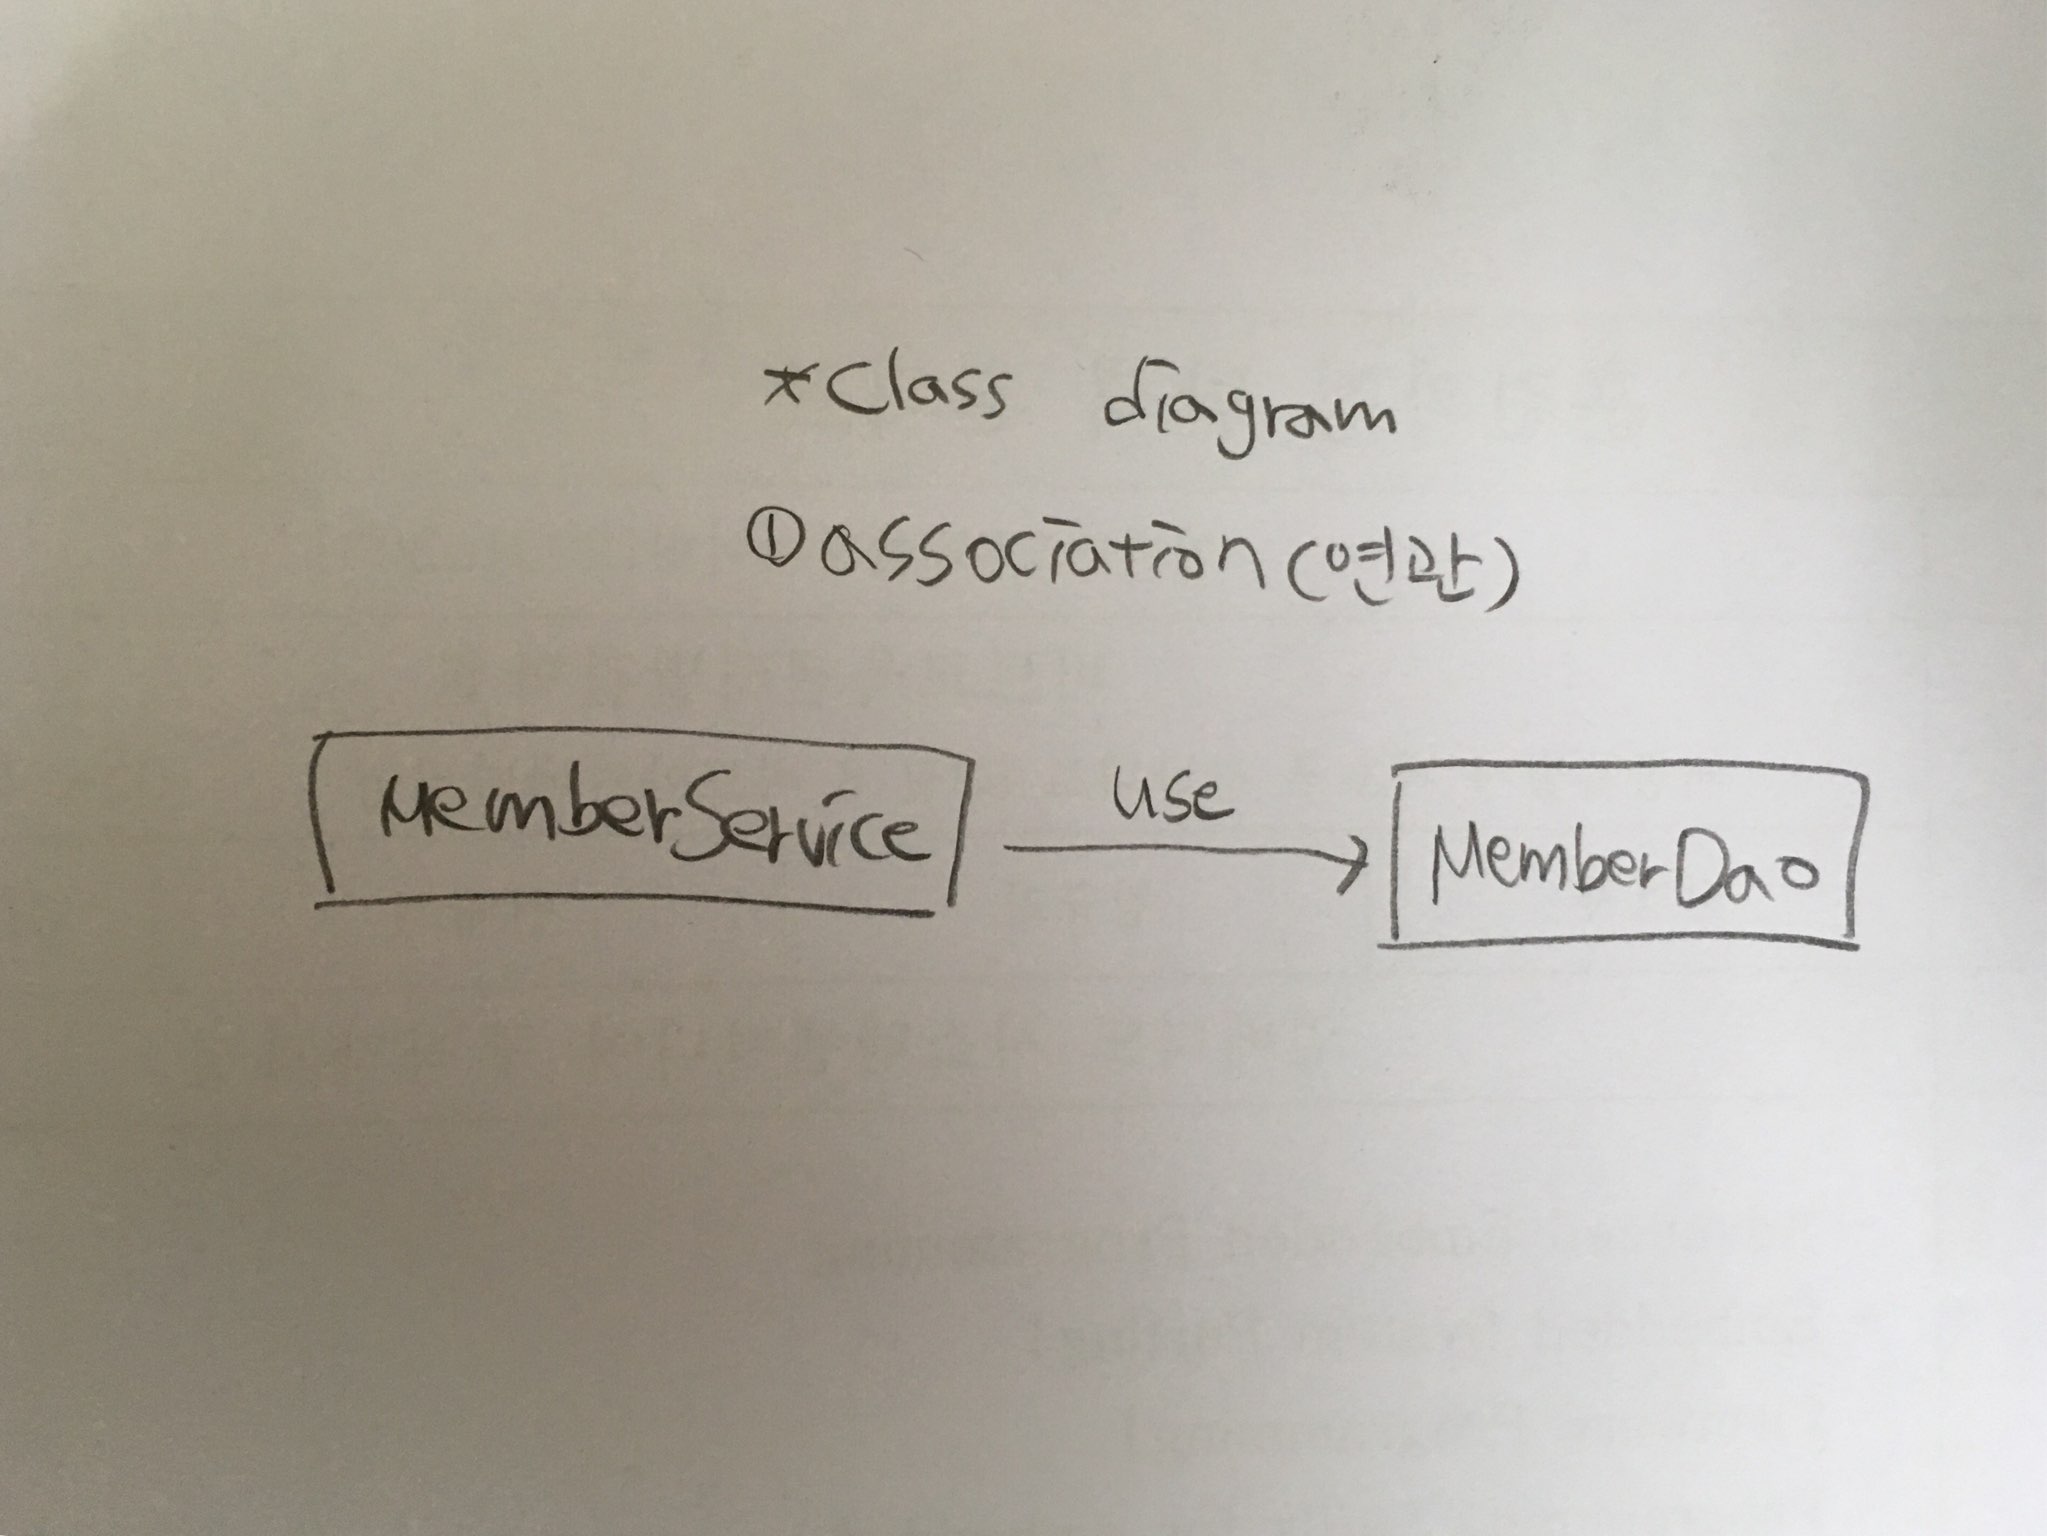 *Class diagram
①association(연관)
MemberService
use
MemberDao